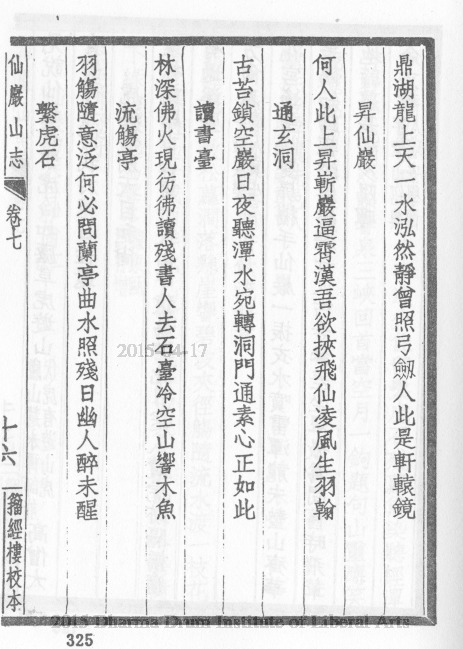 鼎湖龍上天一水泓然靜曾照弓劒人此是軒轅鏡
昇仙巖
何人此上昇嶄巖逼霄漢吾欲挾飛仙凌風生羽翰
通玄洞
古苔鎖空巖日夜聽潭水宛轉洞門通素心正如此
讀書臺
林深佛火現彷彿讀殘書人去石臺冷空山響木魚
流觴亭
羽觴隨意泛何必問蘭亭曲水照殘日幽人醉未醒
繫虎石
仙巖山志
卷七
十六
籀經樓校本
2015-04-17
2015 Dharma Drum Institute of Liberal Arts
325